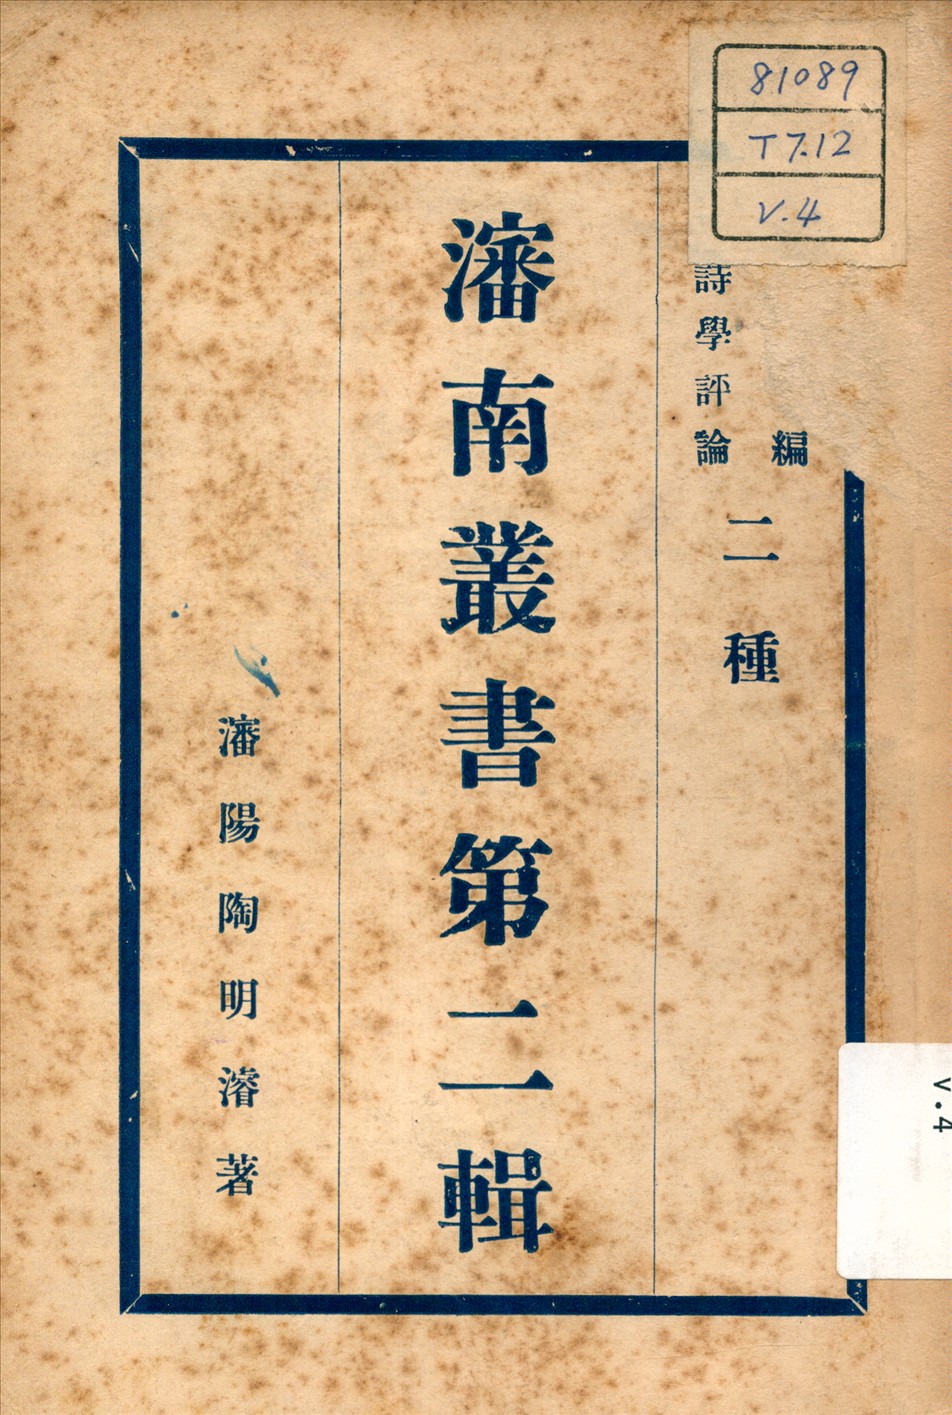 81089
T7.12
V.4
編
詩學評論
二種
瀋南叢書第二輯
瀋陽陶明濬著
v.4